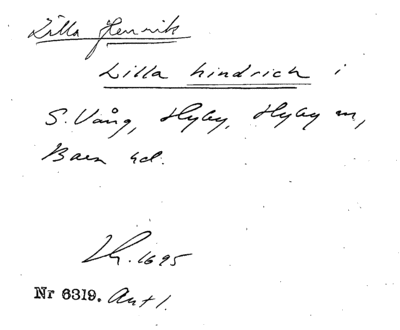 Lilla Henrik
Lilla hindrich i
S. Vång, Hyby, Hyby sn,
Bara hd.
Jb. 1695
Nr 6319. Avt 1.